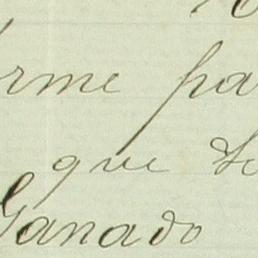 rme pa
que te
Ganado